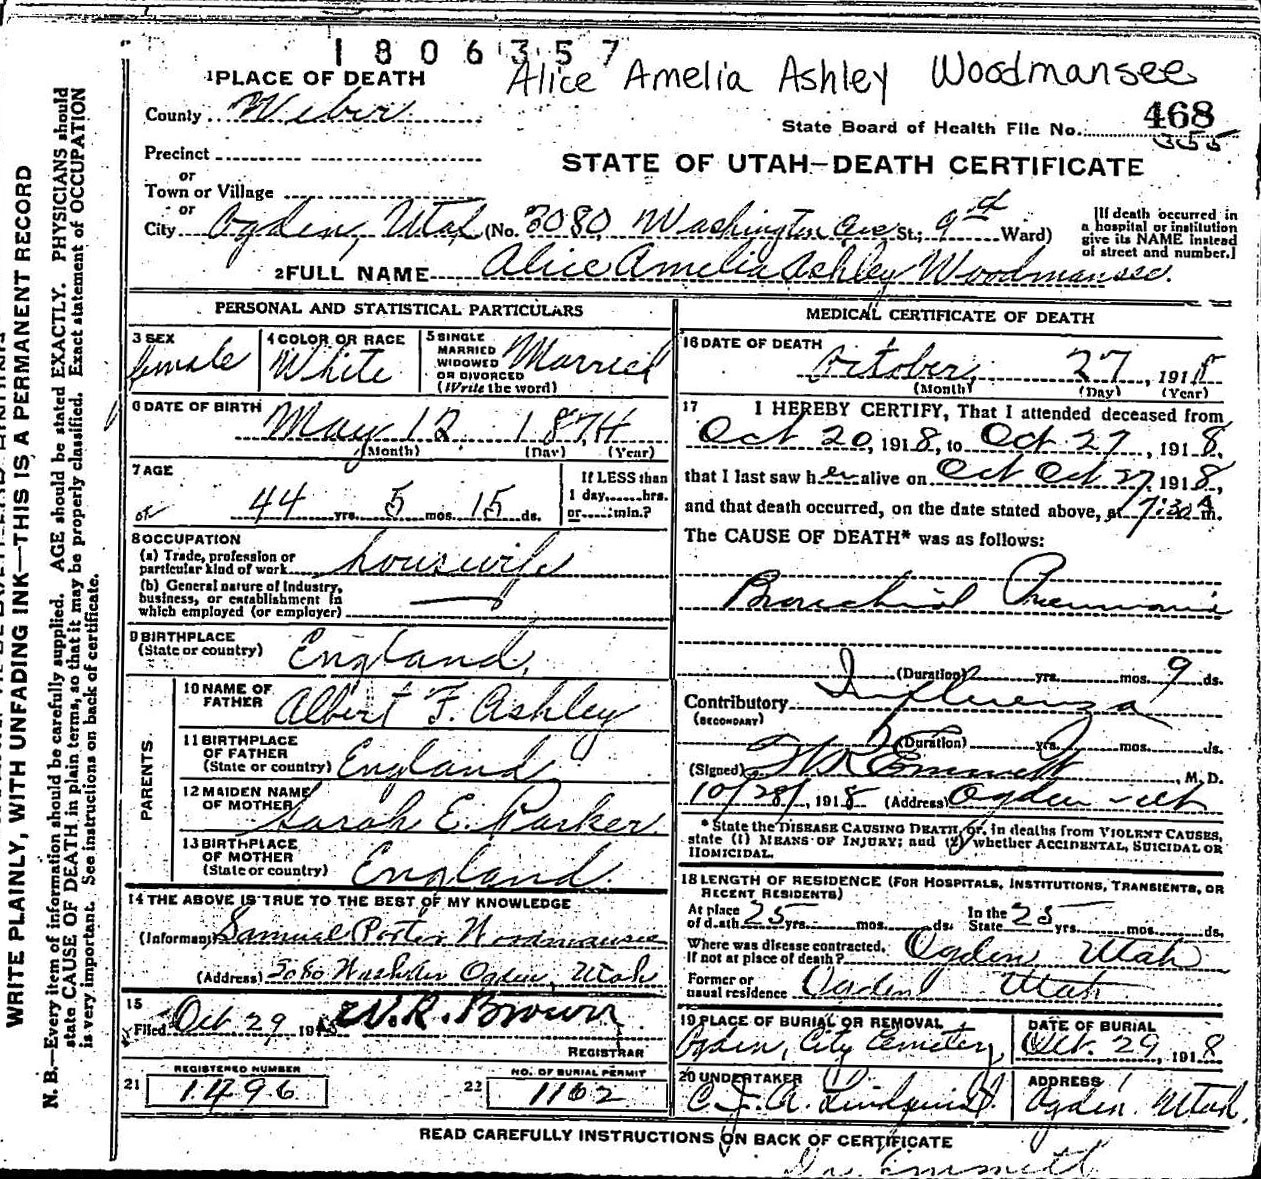 1806357
Alice Amelia Ashley Woodmansee
1 PLACE OF DEATH
County Weber
State Board of Health File No. 468
355
Precinct
or
STATE OF UTAH—DEATH CERTIFICATE
Town or Village
or
City Ogden, Utah (No. 3080 Washington Ave St.; 9 Ward)
[If death occurred in
a hospital or institution
give its NAME instead
of street and number.]
2 FULL NAME Alice Amelia Ashley Woodmansee.
PERSONAL AND STATISTICAL PARTICULARS
3 SEX
female
4 COLOR OR RACE
White
5 SINGLE
MARRIED
WIDOWED
OR DIVORCED
(Write the word)
Married
6 DATE OF BIRTH
May 12 1874
(Month) (Day) (Year)
7 AGE
44 yrs. 5 mos. 15 ds.
If LESS than
1 day,......hrs.
or......min.?
8 OCCUPATION
(a) Trade, profession or
particular kind of work housewife
(b) General nature of industry,
business, or establishment in
which employed (or employer)
9 BIRTHPLACE
(State or country) England,
PARENTS
10 NAME OF
FATHER Albert F. Ashley
11 BIRTHPLACE
OF FATHER
(State or country) England
12 MAIDEN NAME
OF MOTHER Sarah E. Parker.
13 BIRTHPLACE
OF MOTHER
(State or country) England.
14 THE ABOVE IS TRUE TO THE BEST OF MY KNOWLEDGE
(Informant) Samuel Porter Woodmansee
(Address) 3080 Ogden, Utah
15
Filed Oct 29 191 W. R. Brown
REGISTRAR
REGISTERED NUMBER
21 1496
NO. OF BURIAL PERMIT
22 1162
MEDICAL CERTIFICATE OF DEATH
16 DATE OF DEATH
October 27, 1918
(Month) (Day) (Year)
17 I HEREBY CERTIFY, That I attended deceased from
Oct 20, 1918, to Oct 27, 1918,
that I last saw her alive on Oct Oct 27, 1918,
and that death occurred, on the date stated above, at 7:30 A m.
The CAUSE OF DEATH* was as follows:
Bronchial Pneumonia
(Duration) yrs. mos. 9 ds.
Contributory Influenza
(SECONDARY)
(Duration) yrs. mos. ds.
(Signed) Emmett, M. D.
10/28/, 1918 (Address) Ogden Utah
* State the DISEASE CAUSING DEATH, or, in deaths from VIOLENT CAUSES,
state (1) MEANS OF INJURY; and (2) whether ACCIDENTAL, SUICIDAL OR
HOMICIDAL.
18 LENGTH OF RESIDENCE (FOR HOSPITALS, INSTITUTIONS, TRANSIENTS, OR
RECENT RESIDENTS)
At place
of death 25 yrs. mos. ds.
In the
State 25 yrs. mos. ds.
Where was disease contracted,
If not at place of death? Ogden, Utah
Former or
usual residence Ogden Utah
19 PLACE OF BURIAL OR REMOVAL
Ogden, City Cemetery
DATE OF BURIAL
Oct. 29, 1918
20 UNDERTAKER
C. J. A. Lindquist.
ADDRESS
Ogden Utah.
READ CAREFULLY INSTRUCTIONS ON BACK OF CERTIFICATE
Dr. Emmett
WRITE PLAINLY, WITH UNFADING INK—THIS IS A PERMANENT RECORD
N. B.—Every item of information should be carefully supplied. AGE should be stated EXACTLY. PHYSICIANS should
state CAUSE OF DEATH in plain terms, so that it may be properly classified. Exact statement of OCCUPATION
is very important. See instructions on back of certificate.